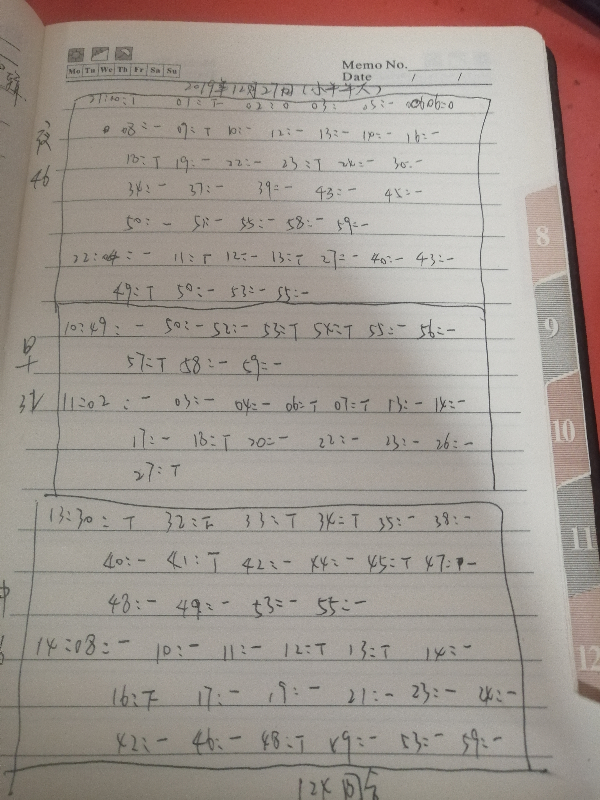 Memo No.
Mo Tu We Th Fr Sa Su
Date / /
2019年12月27日(小半年人)
21:00:1 01:T 02:0 03: 05:- 06:0
08:- 09:T 10:- 12:- 13:- 14:- 16:-
18:T 19:- 22:- 23:T 24:- 30:-
34:- 37:- 39:- 43:- 45:-
夜
46
50:- 51:- 55:- 58:- 59:-
22:04:- 11:T 12:- 13:T 27:- 40:- 43:-
49:T 50:- 53:- 55:-
10:49:- 50:- 52:- 53:T 54:T 55:- 56:-
早
57:T 58:- 59:-
11:02:- 03:- 04:- 06:T 07:T 13:- 14:-
17:- 18:T 20:- 22:- 23:- 26:-
27:T
13:30:T 32:T 33:T 34:T 35:- 38:-
40:- 41:T 42:- 44:- 45:T 47:-
48:- 49:- 53:- 55:-
中
14:08:- 10:- 11:- 12:T 13:T 14:-
16:T 17:- 19:- 21:- 23:- 24:-
42:- 46:- 48:T 49:- 53:- 59:-
8
9
10
11
12